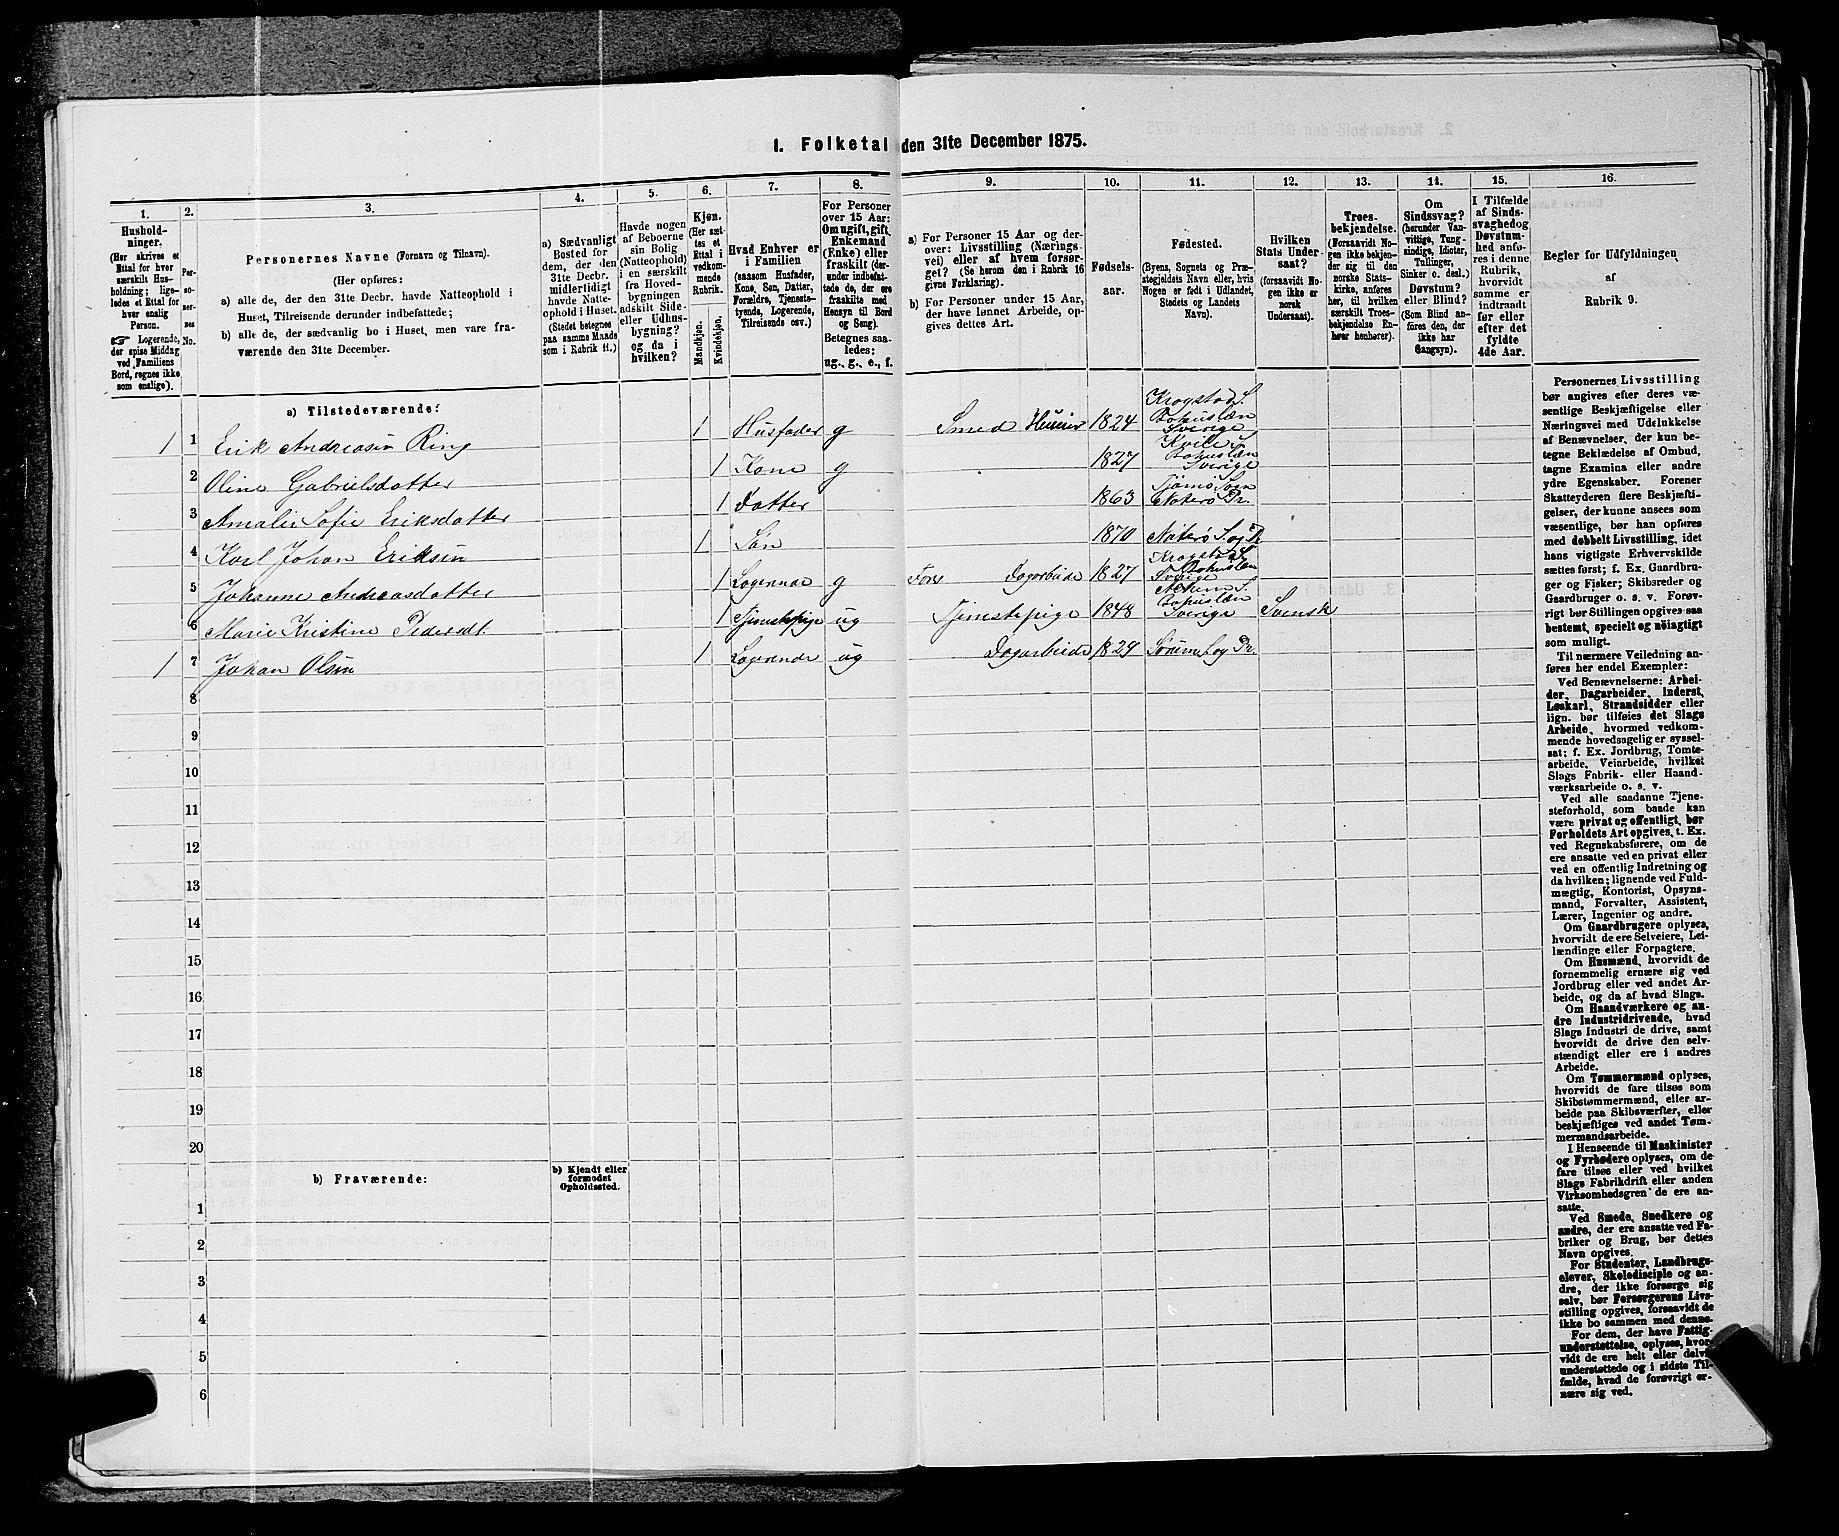 I. Folketal den 31te December 1875.
1. 2. 3. 4. 5. 6. 7. 8. 9. 10. 11. 12. 13. 14. 15. 16.
Hushold-
ninger.
(Her skrives et
Ettal for hver
særskilt Hus-
holdning; lige-
ledes et Ettal for
hver enslig
Person.
☞ Logerende,
der spise Middag
ved Familiens
Bord, regnes ikke
som enslige).
Per-
so-
ner-
nes
No.
Personernes Navne (Fornavn og Tilnavn).
(Her opføres:
a) alle de, der den 31te Decbr. havde Natteophold i
Huset, Tilreisende derunder indbefattede;
b) alle de, der sædvanlig bo i Huset, men vare fra-
værende den 31te December.
a) Sædvanligt
Bosted for
dem, der den
31te Decbr.
midlertidigt
havde Natte-
ophold i Huset.
(Stedet betegnes
paa samme Maade
som i Rubrik 11.)
Havde nogen
af Beboerne
sin Bolig
(Natteophold)
i en særskilt
fra Hoved-
bygningen
adskilt Side-
eller Udhus-
bygning?
og da i
hvilken?
Kjøn.
(Her sæt-
tes et
Ettal i
vedkom-
mende
Rubrik.
Mandkjøn.
Kvindekjøn.
Hvad Enhver er
i Familien
(saasom Husfader,
Kone, Søn, Datter,
Forældre, Tjeneste-
tyende, Logerende,
Tilreisende osv.)
For Personer
over 15 Aar:
Om ugift, gift,
Enkemand
(Enke) eller
fraskilt (der-
under indbefat-
tede de, der ere
fraskilte med
Hensyn til Bord
og Seng).
Betegnes saa-
ledes:
ug., g., e., f.
a) For Personer 15 Aar og der-
over: Livsstilling (Nærings-
vei) eller af hvem forsør-
get? (Se herom den i Rubrik 16
givne Forklaring).
b) For Personer under 15 Aar,
der have lønnet Arbeide, op-
gives dettes Art.
Fødsels-
aar.
Fødested.
(Byens, Sognets og Præ-
stegjeldets Navn eller, hvis
Nogen er født i Udlandet,
Stedets og Landets
Navn).
Hvilken
Stats Under-
saat?
(forsaavidt No-
gen ikke er
norsk
Undersaat).
Troes-
bekjendelse.
(Forsaavidt No-
gen ikke bekjen-
der sig til den
norske Stats-
kirke, anføres
her, til hvilken
særskilt Troes-
bekjendelse En-
hver henhører).
Om
Sindssvag?
(herunder Van-
vittige, Tung-
sindige, Idioter,
Tullinger,
Sinker o. desl.)
Døvstum?
eller Blind?
(Som Blind an-
føres den, der
ikke har
Gangsyn).
I Tilfælde
af Sinds-
svaghed og
Døvstum-
hed anfø-
res i denne
Rubrik,
hvorvidt
samme er
indtraadt
før eller
efter det
fyldte
4de Aar.
Regler for Udfyldningen
af
Rubrik 9.
a) Tilstedeværende:
1 1 Erik Andreasen Ring 1 Husfader g Smed Huseier 1824 Krogstad S. Bohuslæn Sverige
2 Oline Gabrielsdatter 1 Kone g 1827 Kville S Bohuslæn Sverige
3 Amalie Sofie Eriksdatter 1 Datter 1863 Tjømø Sogn Nøterø Pr.
4 Karl Johan Eriksen 1 Søn 1870 Nøterø S. og Pr
5 Johanne Andreasdatter 1 Logerende g Dagarbeide 1827 Krogstad S Bohuslæn Sverige
6 Marie Kristine Pedersdt. 1 Tjenestepige ug Tjenestepige 1848 S. Bohuslæn Sverige Svensk
1 7 Johan Olsen 1 Logerende ug Dagarbeide 1829 Sørum S. og Pr.
8
9
10
11
12
13
14
15
16
17
18
19
20
b) Fraværende:
b) Kjendt eller
formodet
Opholdssted.
1
2
3
4
5
6
Personernes Livsstilling
bør angives efter deres væ-
sentlige Beskjæftigelse eller
Næringsvei med Udelukkelse
af Benævnelser, der kun be-
tegne Beklædelse af Ombud,
tagne Examina eller andre
ydre Egenskaber. Forener
Skatteyderen flere Beskjæfti-
gelser, der kunne ansees som
væsentlige, bør han opføres
med dobbelt Livsstilling, idet
hans vigtigste Erhvervskilde
sættes først; f. Ex. Gaardbru-
ger og Fisker; Skibsreder og
Gaardbruger o. s. v. Forøv-
rigt bør Stillingen opgives saa
bestemt, specielt og nøiagtigt
som muligt.
Til nærmere Veiledning an-
føres her endel Exempler:
Ved Benævnelserne: Arbei-
der, Dagarbeider, Inderst,
Løskarl, Strandsidder eller
lign. bør tilføies det Slags
Arbeide, hvormed vedkom-
mende hovedsagelig er syssel-
sat; f. Ex. Jordbrug, Tomte-
arbeide, Veiarbeide, hvilket
Slags Fabrik- eller Haand-
værksarbeide o. s. v.
Ved alle saadanne Tjene-
steforhold, som baade kan
være privat og offentligt, bør
Forholdets Art opgives, t. Ex.
ved Regnskabsførere, om de
ere ansatte ved en privat eller
ved en offentlig Indretning og
da hvilken; lignende ved Fuld-
mægtig, Kontorist, Opsyns-
mand, Forvalter, Assistent,
Lærer, Ingeniør og andre.
Om Gaardbrugere oplyses,
hvorvidt de ere Selveiere, Lei-
lændinge eller Forpagtere.
Om Husmænd, hvorvidt de
fornemmelig ernære sig ved
Jordbrug eller ved andet Ar-
beide, og da af hvad Slags.
Om Haandværkere og an-
dre Industridrivende, hvad
Slags Industri de drive, samt
hvorvidt de drive den selv-
stændigt eller ere i andres
Arbeide.
Om Tømmermænd oplyses,
hvorvidt de fare tilsøs som
Skibstømmermænd, eller ar-
beide paa Skibsværfter, eller
beskjæftiges ved andet Tøm-
mermandsarbeide.
I Henseende til Maskinister
og Fyrbødere oplyses, om de
fare tilsøs eller ved hvilket
Slags Fabrikdrift eller anden
Virksomhedsgren de ere an-
satte.
Ved Smede, Snedkere og
andre, der ere ansatte ved Fa-
briker og Brug, bør dettes
Navn opgives.
For Studenter, Landbrugs-
elever, Skoledisciple og an-
dre, der ikke forsørge sig
selv, bør Forsørgerens Livs-
stilling opgives, forsaavidt de
ikke bo sammen med denne.
For dem, der have Fattig-
understøttelse, oplyses, hvor-
vidt de ere helt eller delvis
understøttede og i sidste Til-
fælde, hvad de forøvrigt er-
nære sig ved.